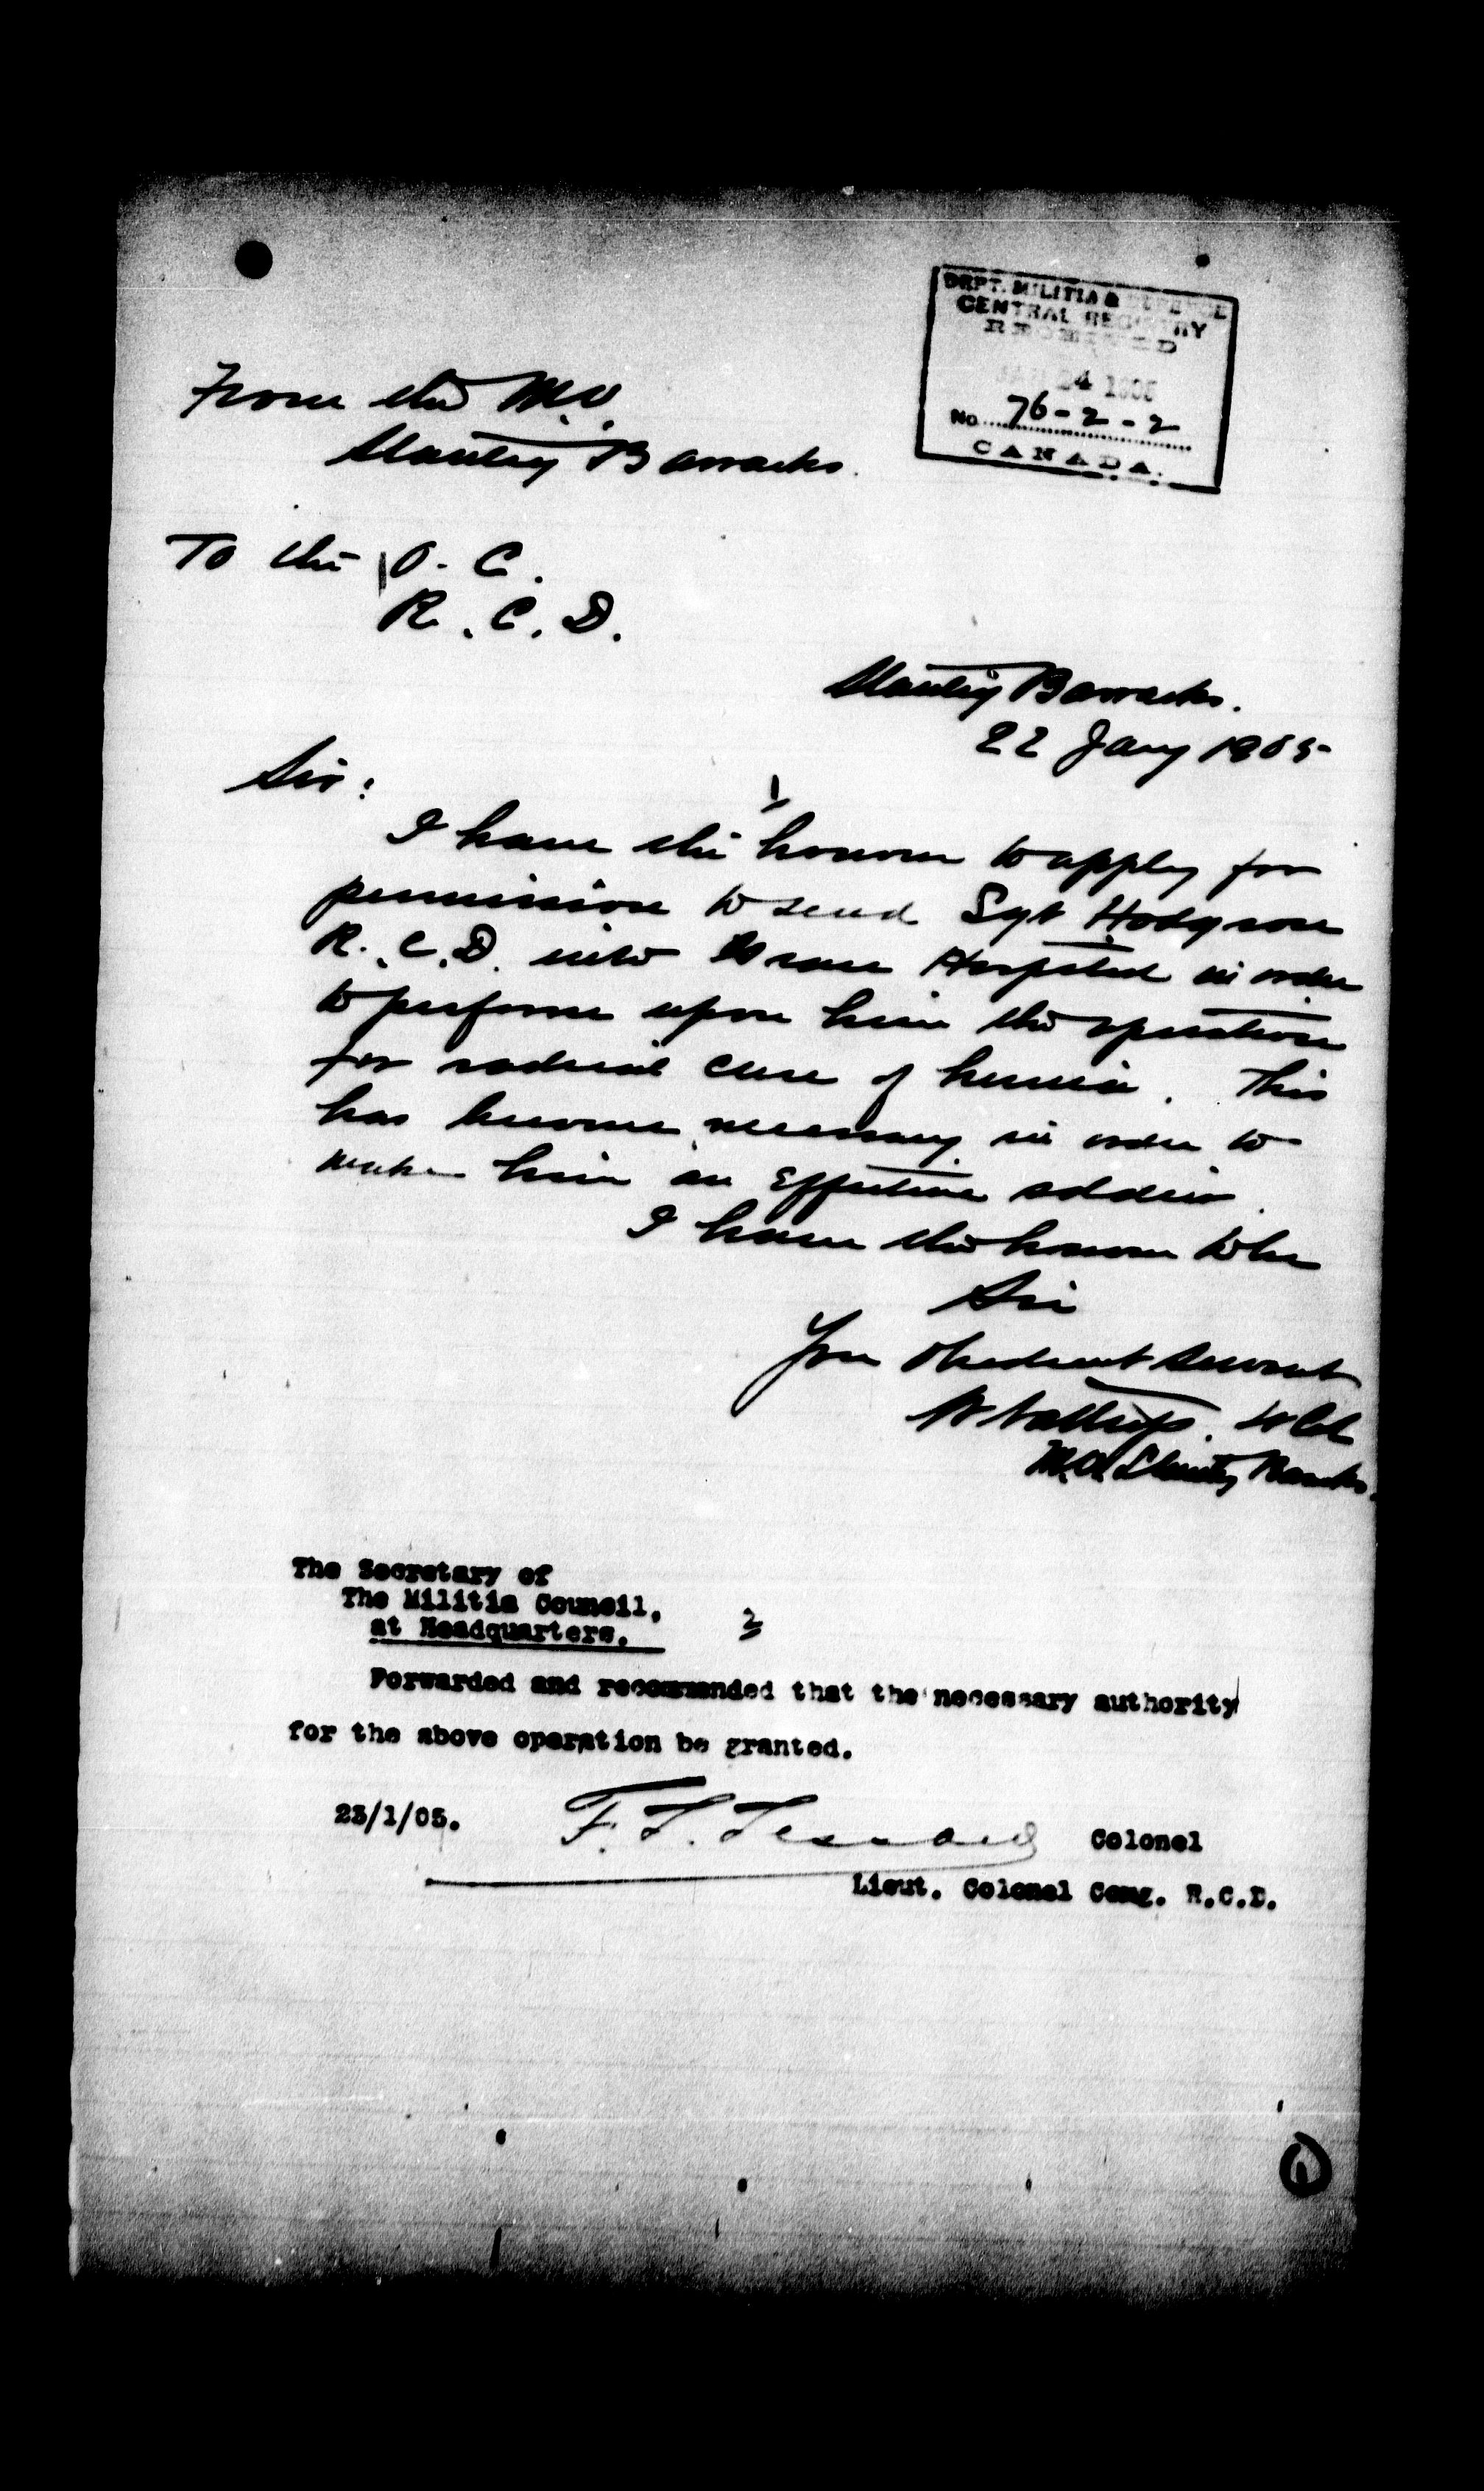 DEPT. MILITIA & DEFENCE
CENTRAL REGISTRY
RECEIVED
JAN 24 1905
No. 76-2-2
CANADA.
From the M.O.
Stanley Barracks.
To the O. C.
R. C. D.
Stanley Barracks.
22 Jany 1905
Sir:
1
I have the honour to apply for
permission to send Sgt Hodgson
R. C. D. into Grace Hospital in order
to perform upon him the operation
for radical cure of hernia. This
has become necessary in order to
make him an effective soldier.
I have the honour to be
Sir
Your obedient servant
W Nattress. Lt Col
M.O. Stanley Barracks.
The Secretary of
The Militia Council,
at Headquarters.
2
Forwarded and recommended that the necessary authority
for the above operation be granted.
23/1/05.
F. L. Lessard Colonel
Lieut. Colonel Comg. R.C.D.
1